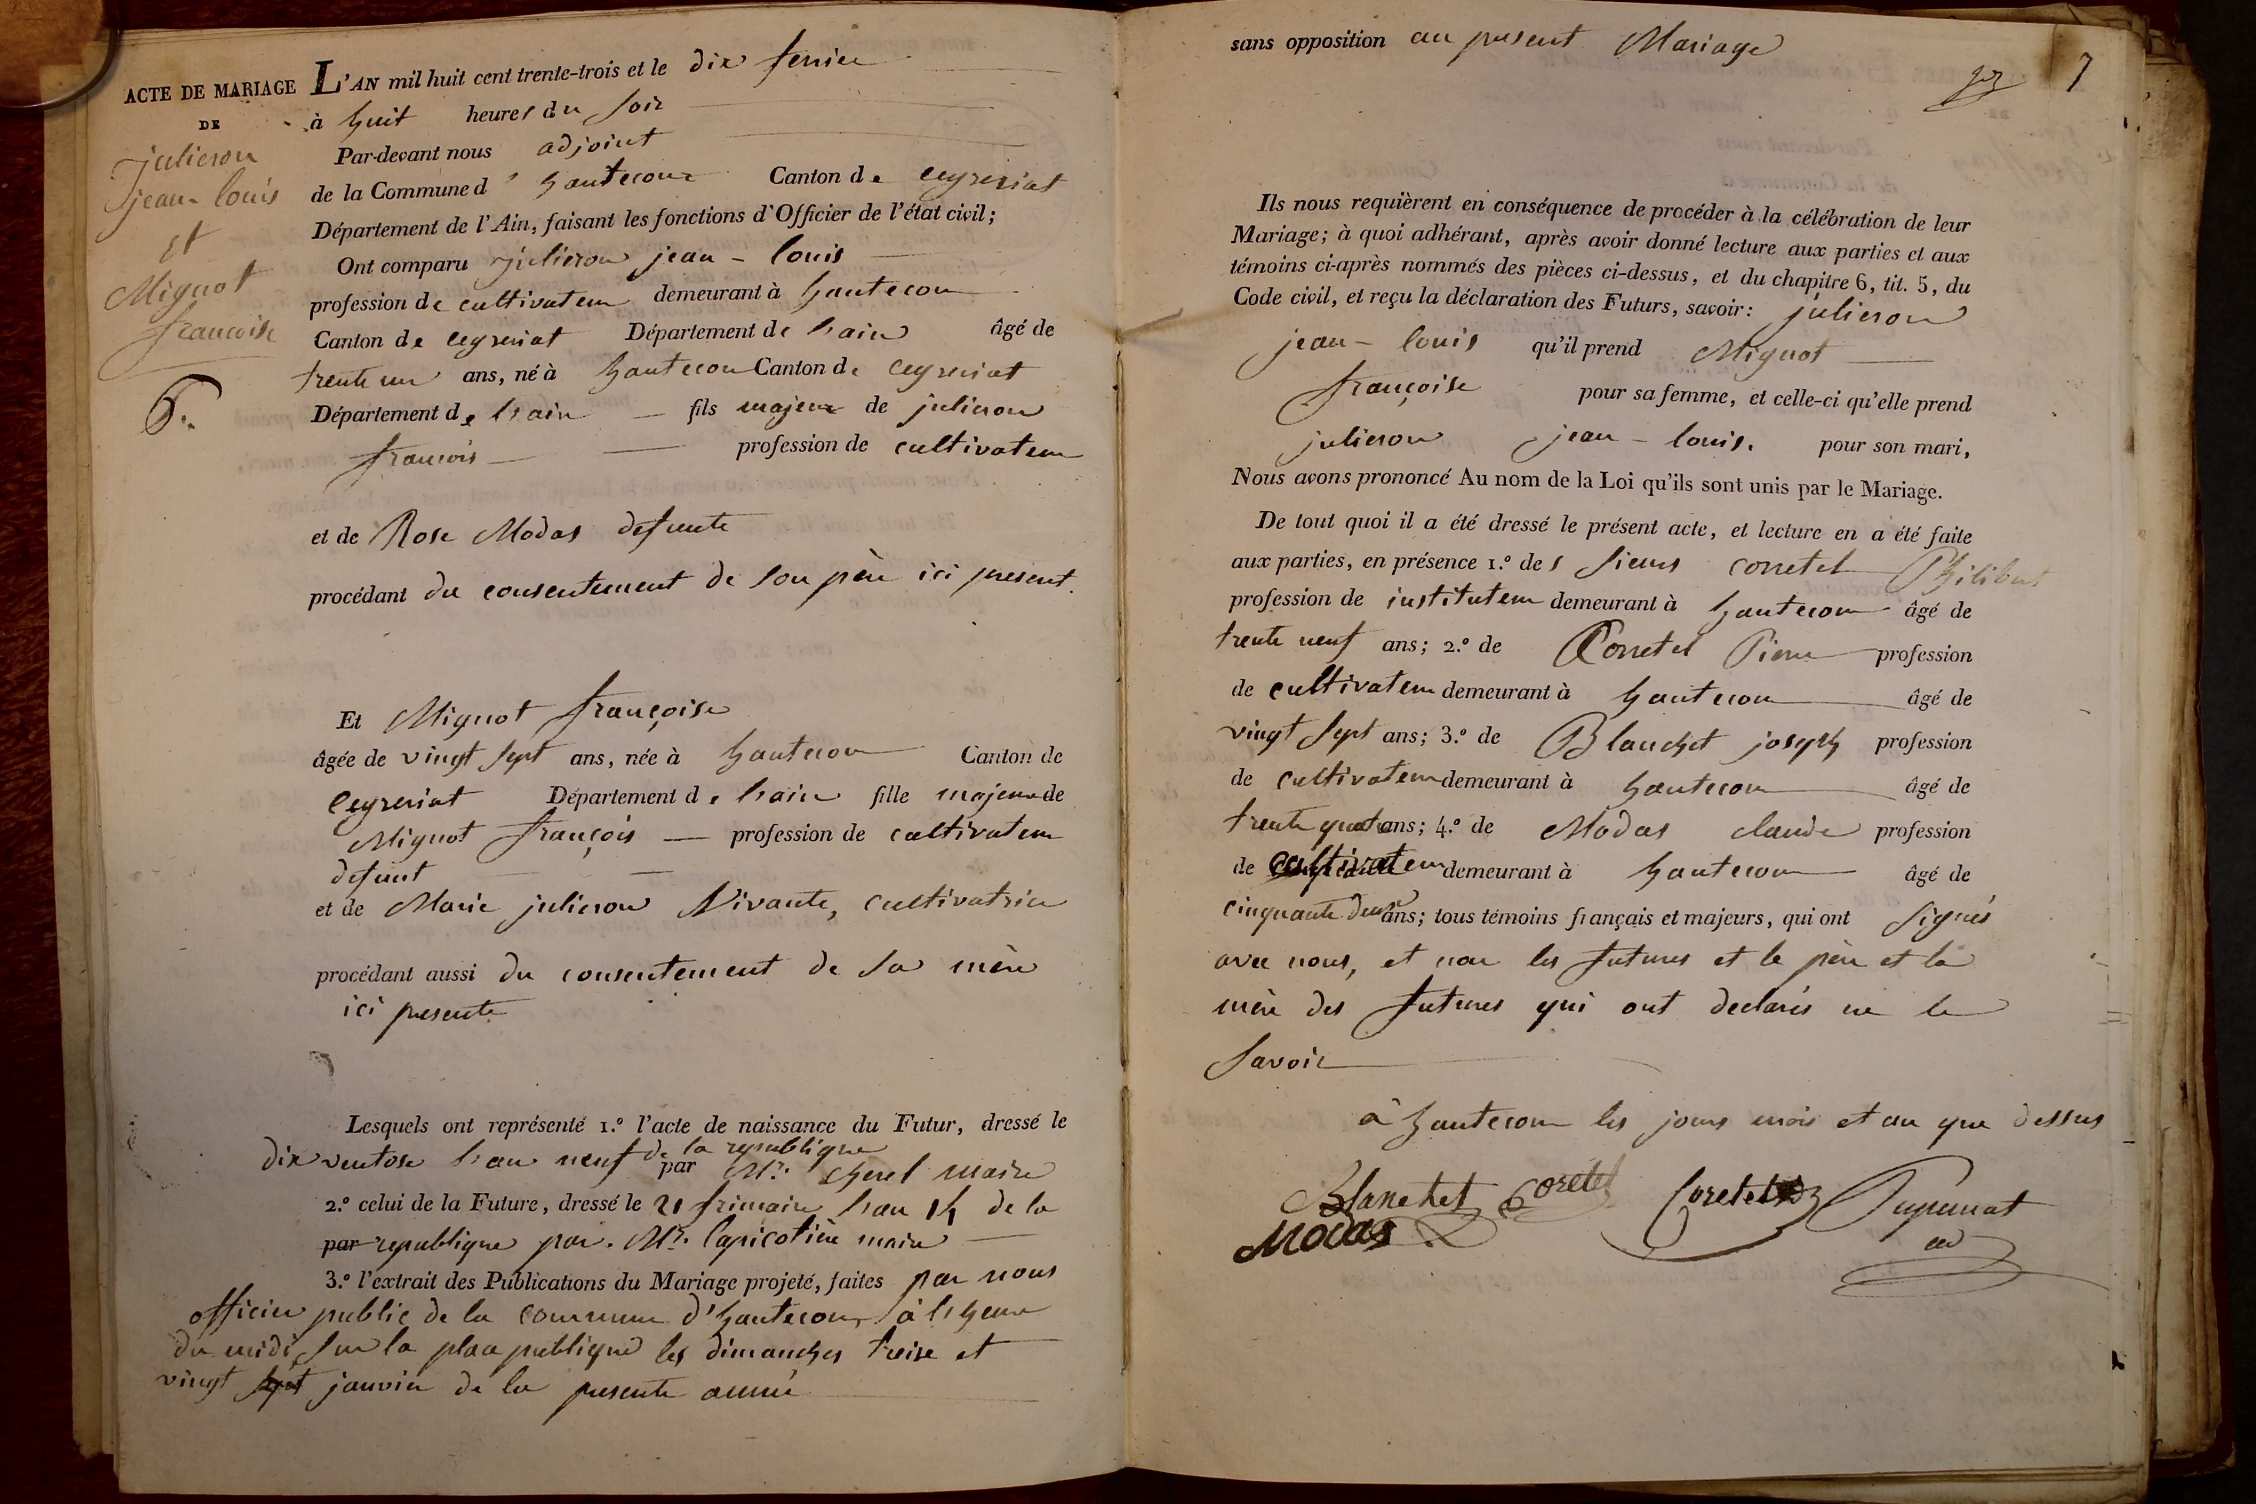 ACTE DE MARIAGE
DE
julieron
jean-louis
et
Mignot
francoise
6.
L'AN mil huit cent trente-trois et le dix fevrier
à huit heures du soir
Par-devant nous adjoint
de la Commune d'hautecour Canton de ceyzeriat
Département de l'Ain, faisant les fonctions d'Officier de l'état civil;
Ont comparu julieron jean-louis
profession de cultivateur demeurant à hautecour
Canton de ceyzeriat Département de l'ain âgé de
trente un ans, né à hautecour Canton de ceyzeriat
Département de l'ain fils majeur de julieron
francois profession de cultivateur
et de Rose Modas defunte
procédant du consentement de son père ici present.
Et Mignot françoise
âgée de vingt sept ans, née à hautecour Canton de
ceyzeriat Département de l'ain fille majeure de
Mignot françois profession de cultivateur
defunt
et de Marie julieron Vivante, cultivatrice
procédant aussi du consentement de sa mère
ici presente
Lesquels ont représenté 1.º l'acte de naissance du Futur, dressé le
dix ventose l'an neuf de la republique
par Mr. cherel maire
2.º celui de la Future, dressé le 21 frimaire l'an 14 de la
par republique par Mr. Lapicotière maire
3.º l'extrait des Publications du Mariage projeté, faites par nous
officier public de la commune d'hautecour à l'heure
du midi sur la place publique les dimanches treize et
vingt janvier de la presente année
sans opposition au present Mariage
7
Ils nous requièrent en conséquence de procéder à la célébration de leur
Mariage; à quoi adhérant, après avoir donné lecture aux parties et aux
témoins ci-après nommés des pièces ci-dessus, et du chapitre 6, tit. 5, du
Code civil, et reçu la déclaration des Futurs, savoir: julieron
jean-louis qu'il prend Mignot
françoise pour sa femme, et celle-ci qu'elle prend
julieron jean-louis. pour son mari,
Nous avons prononcé Au nom de la Loi qu'ils sont unis par le Mariage.
De tout quoi il a été dressé le présent acte, et lecture en a été faite
aux parties, en présence 1.º des sieurs corretel Philibert
profession de instituteur demeurant à hautecour âgé de
trente neuf ans; 2.º de Corretel Pierre profession
de cultivateur demeurant à hautecour âgé de
vingt sept ans; 3.º de Blanchet joseph profession
de cultivateur demeurant à hautecour âgé de
trente quatre ans; 4.º de Modas claude profession
de cultivateur demeurant à hautecour âgé de
cinquante deux ans; tous témoins français et majeurs, qui ont signés
avec nous, et non les futures et le père et la
mère des futures qui ont declarés ne le
savoir
à hautecour les jours mois et an que dessus
Blanchet Coretel Coretel Pupunat
Modas ad